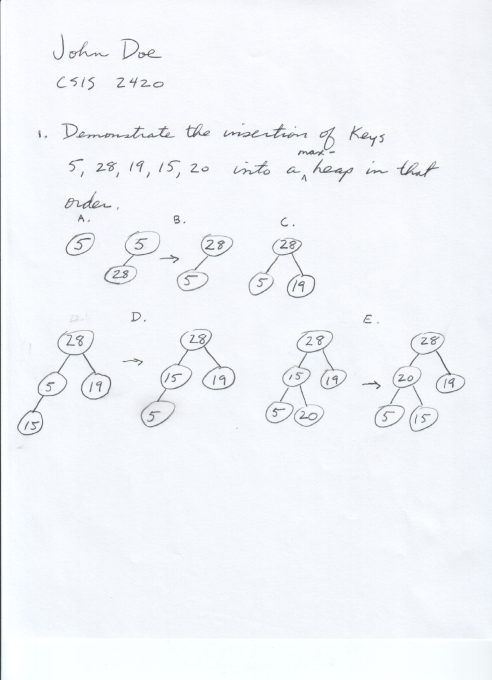 John Doe
CSIS 2420
1. Demonstrate the insertion of Keys
5, 28, 19, 15, 20 into a max-heap in that
order.
A. B. C.
5 5 → 28 28
28 5 5 19
D. E.
28 → 28 28 → 28
5 19 15 19 15 19 20 19
15 5 5 20 5 15